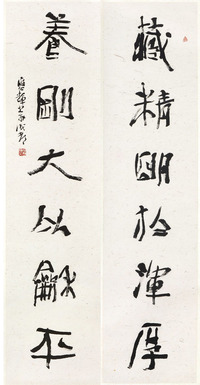 藏精明於渾厚
養剛大以龢平